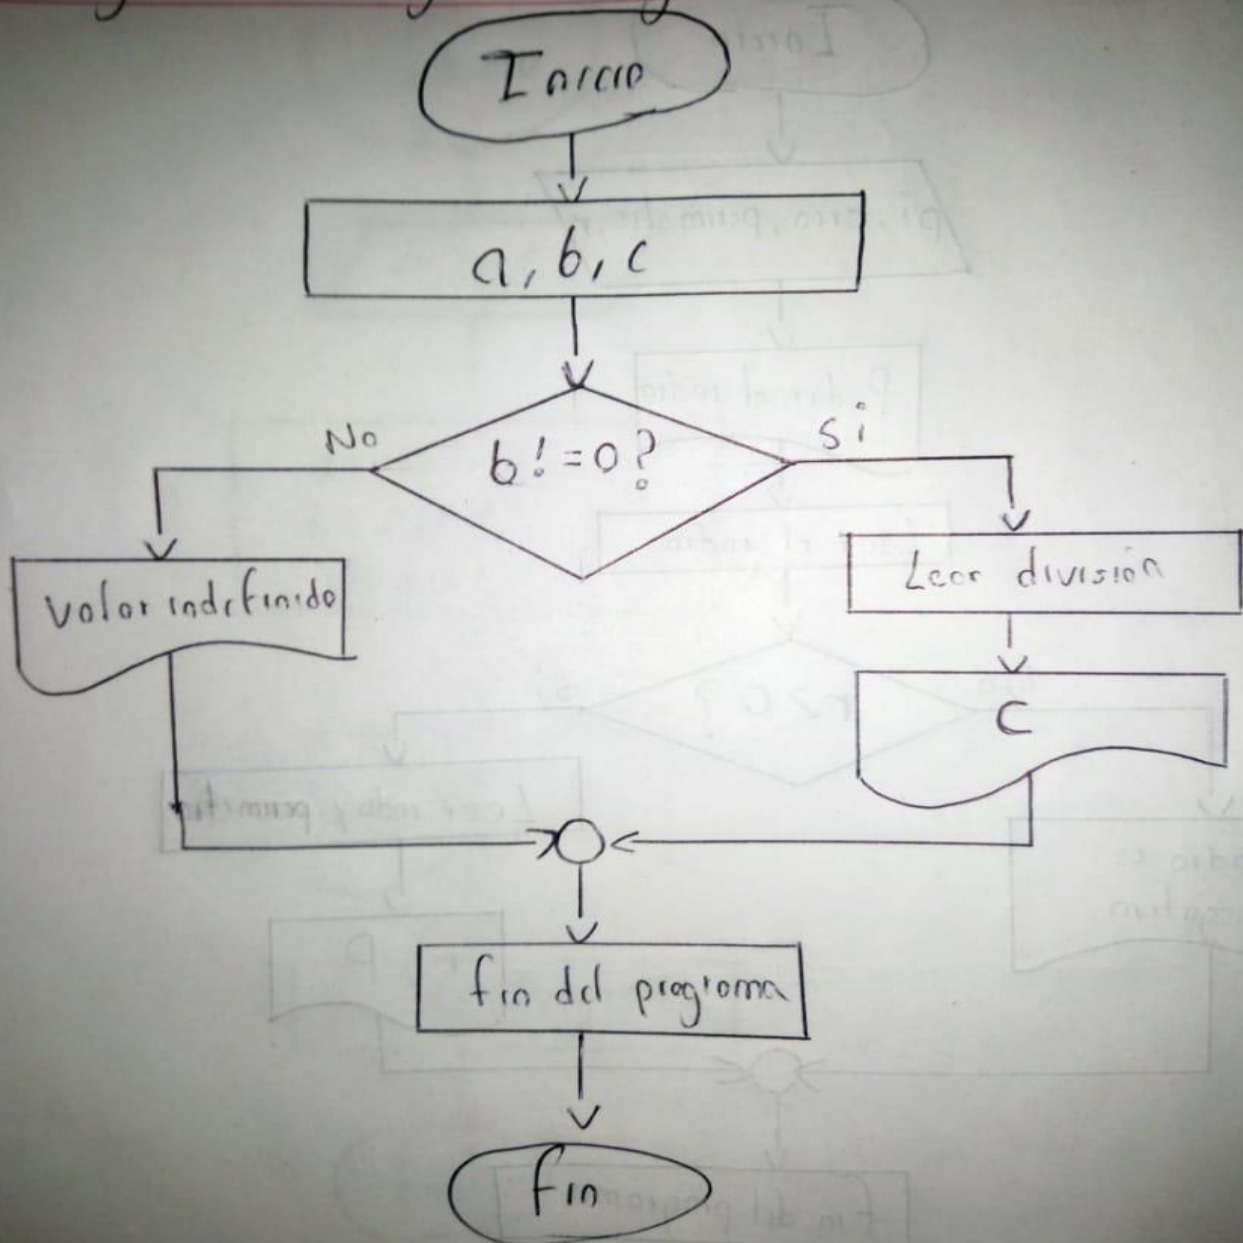 Inicio
a, b, c
b!=0?
No
Si
Valor indefinido
Leer división
C
fin del programa
fin